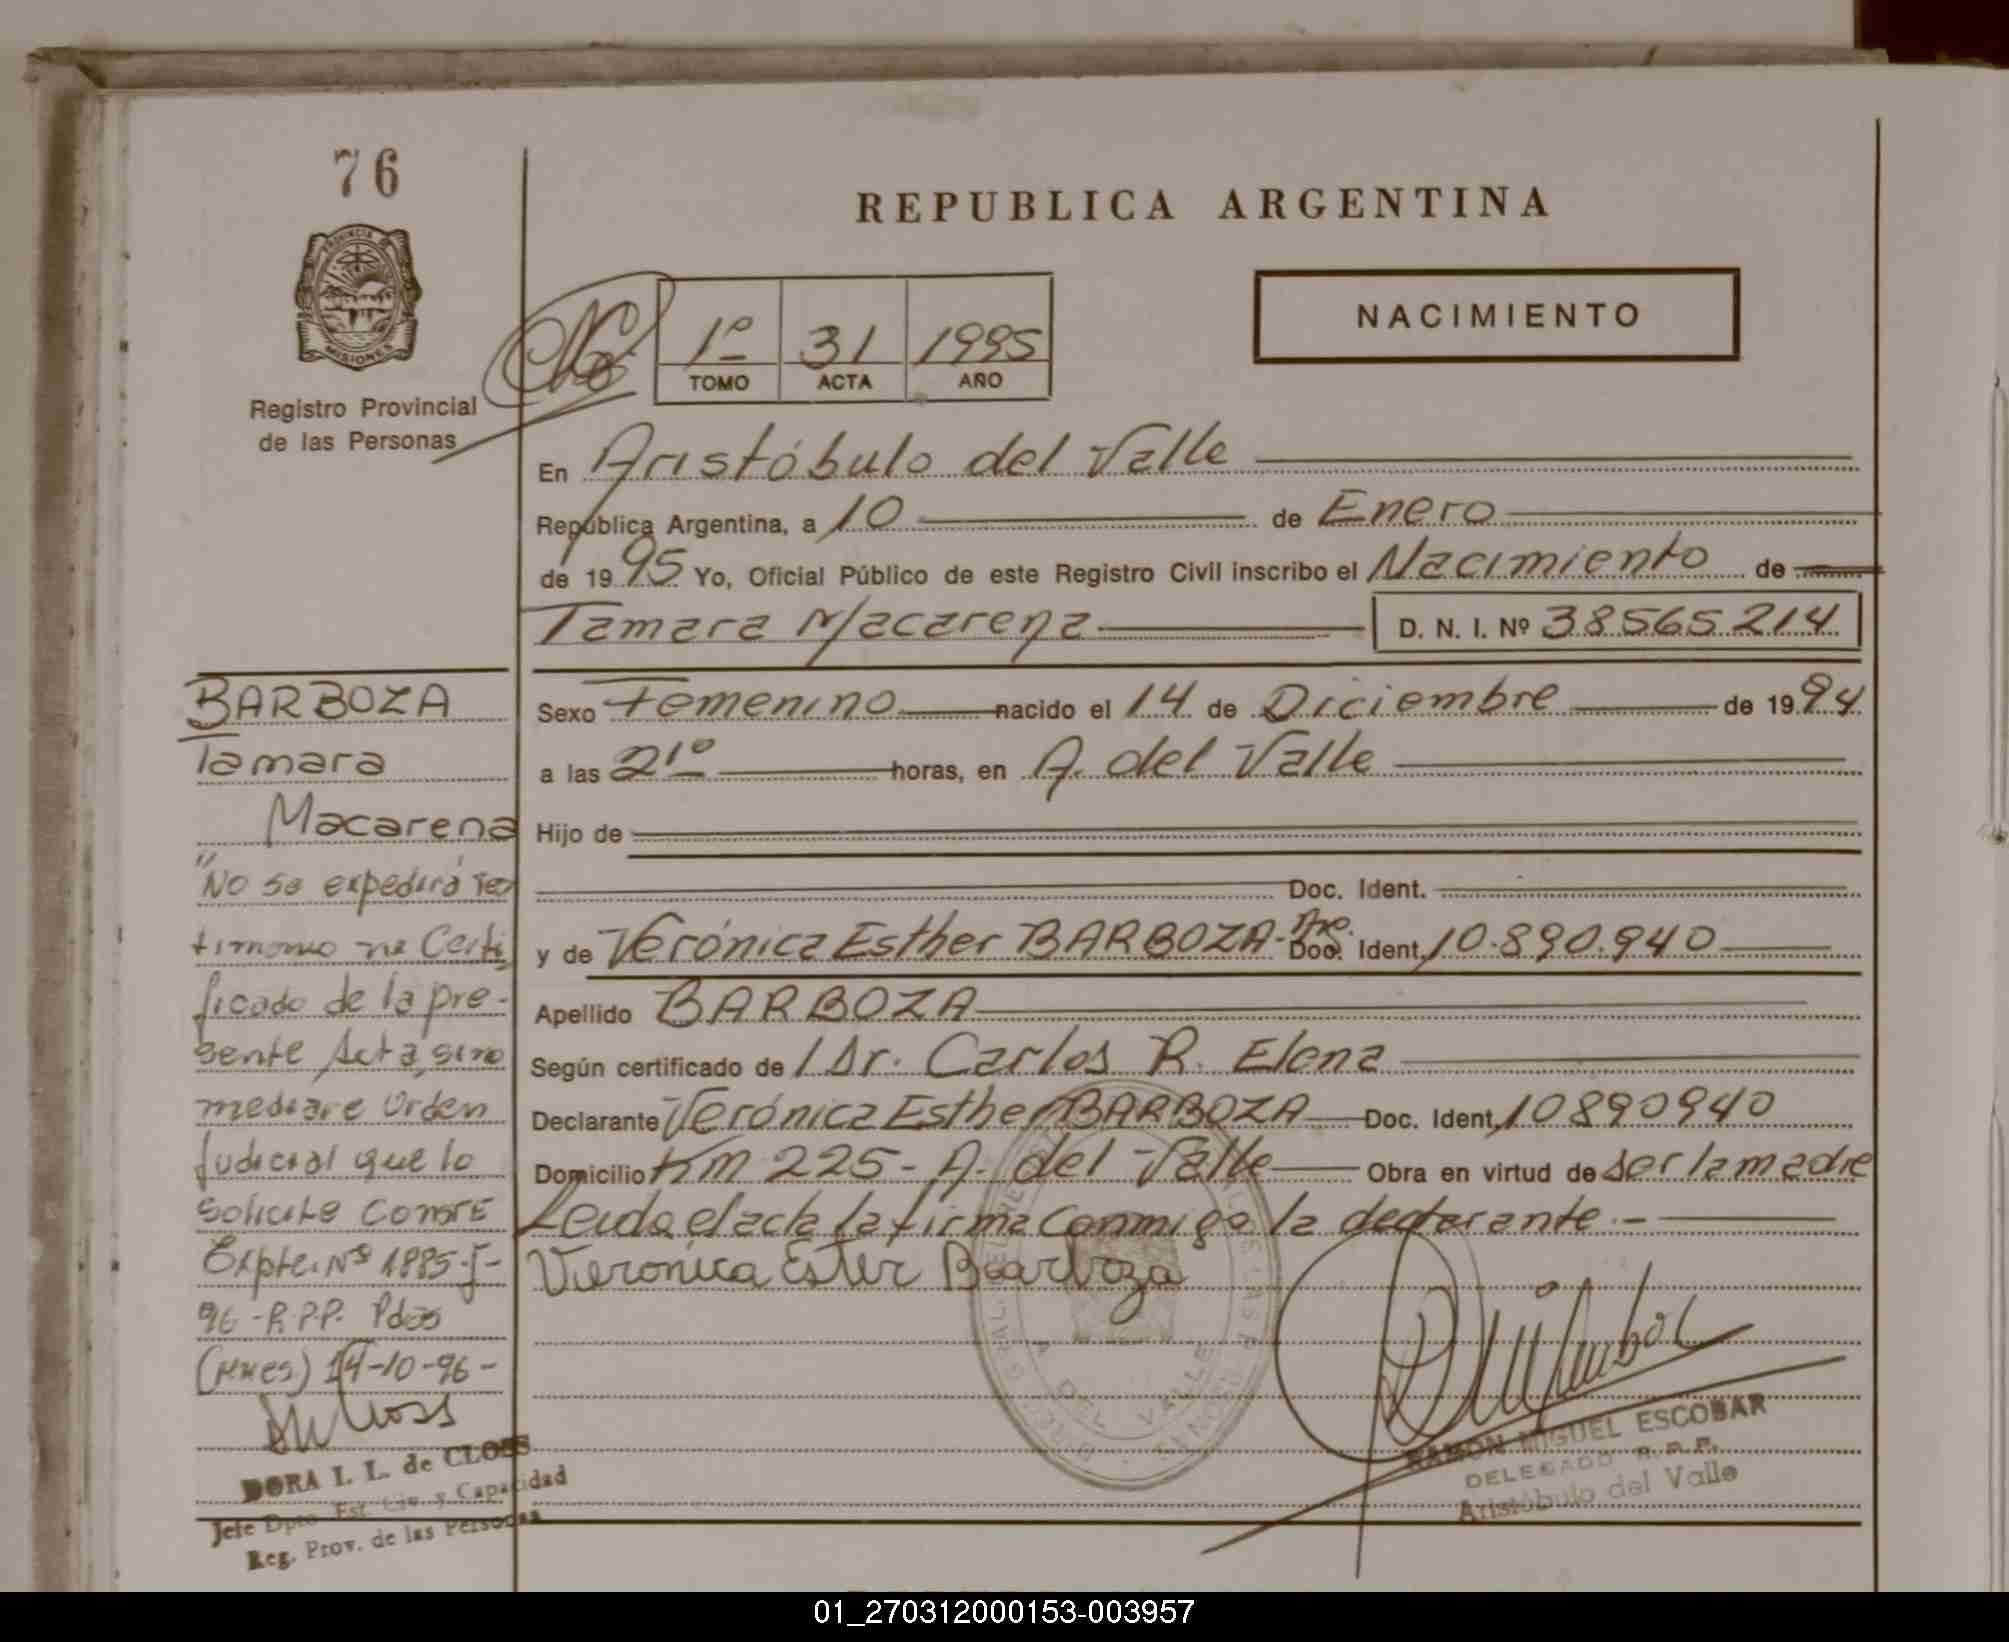 76
REPUBLICA ARGENTINA
PROVINCIA DE
MISIONES
Registro Provincial
de las Personas
1º 31 1995
TOMO ACTA AÑO
NACIMIENTO
En Aristóbulo del Valle
República Argentina, a 10 de Enero
de 1995 Yo, Oficial Público de este Registro Civil inscribo el Nacimiento de
Tamara Macarena D. N. I. Nº 38565214
Sexo Femenino nacido el 14 de Diciembre de 1994
a las 21º horas, en A. del Valle
Hijo de
Doc. Ident.
y de Verónica Esther BARBOZA- Arg. Doc. Ident. 10.890.940
Apellido BARBOZA
Según certificado de l Dr. Carlos R. Elena
Declarante Verónica Esther BARBOZA Doc. Ident. 10890940
Domicilio Km 225- A. del Valle Obra en virtud de ser la madre
Leida el acta la firma conmigo la declarante.-
Vieronica Ester Barboza
BARBOZA
Tamara
Macarena
"No se expedirá Tes
timonio ni Certi
ficado de la pre-
sente Acta, sino
mediare Orden
Judicial que lo
solicite Conste
Expte. Nº 1885-J-
96-R.P.P. Pdas
(Mnes) 14-10-96-
DORA I. L. de CLOSS
Jefe Dpto. Est. Civ. y Capacidad
Reg. Prov. de las Personas
DEL VALLE
RAMON MIGUEL ESCOBAR
DELEGADO R. P. P.
Aristóbulo del Valle
01_270312000153-003957